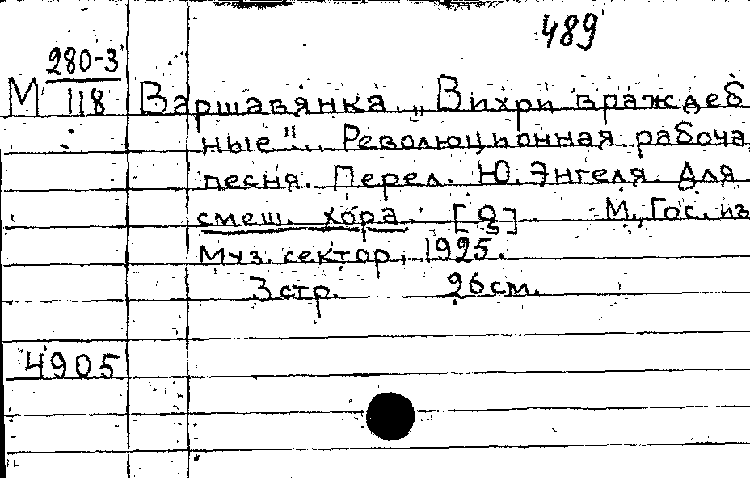 489
М 280-3/118
Варшавянка „Вихри враждеб
ные"... Революционная рабоча
песня. Перел. Ю. Энгеля. Для
смеш. хора. М., Гос. из
Муз. сектор, 1925.
3 стр. 26 см.
4905